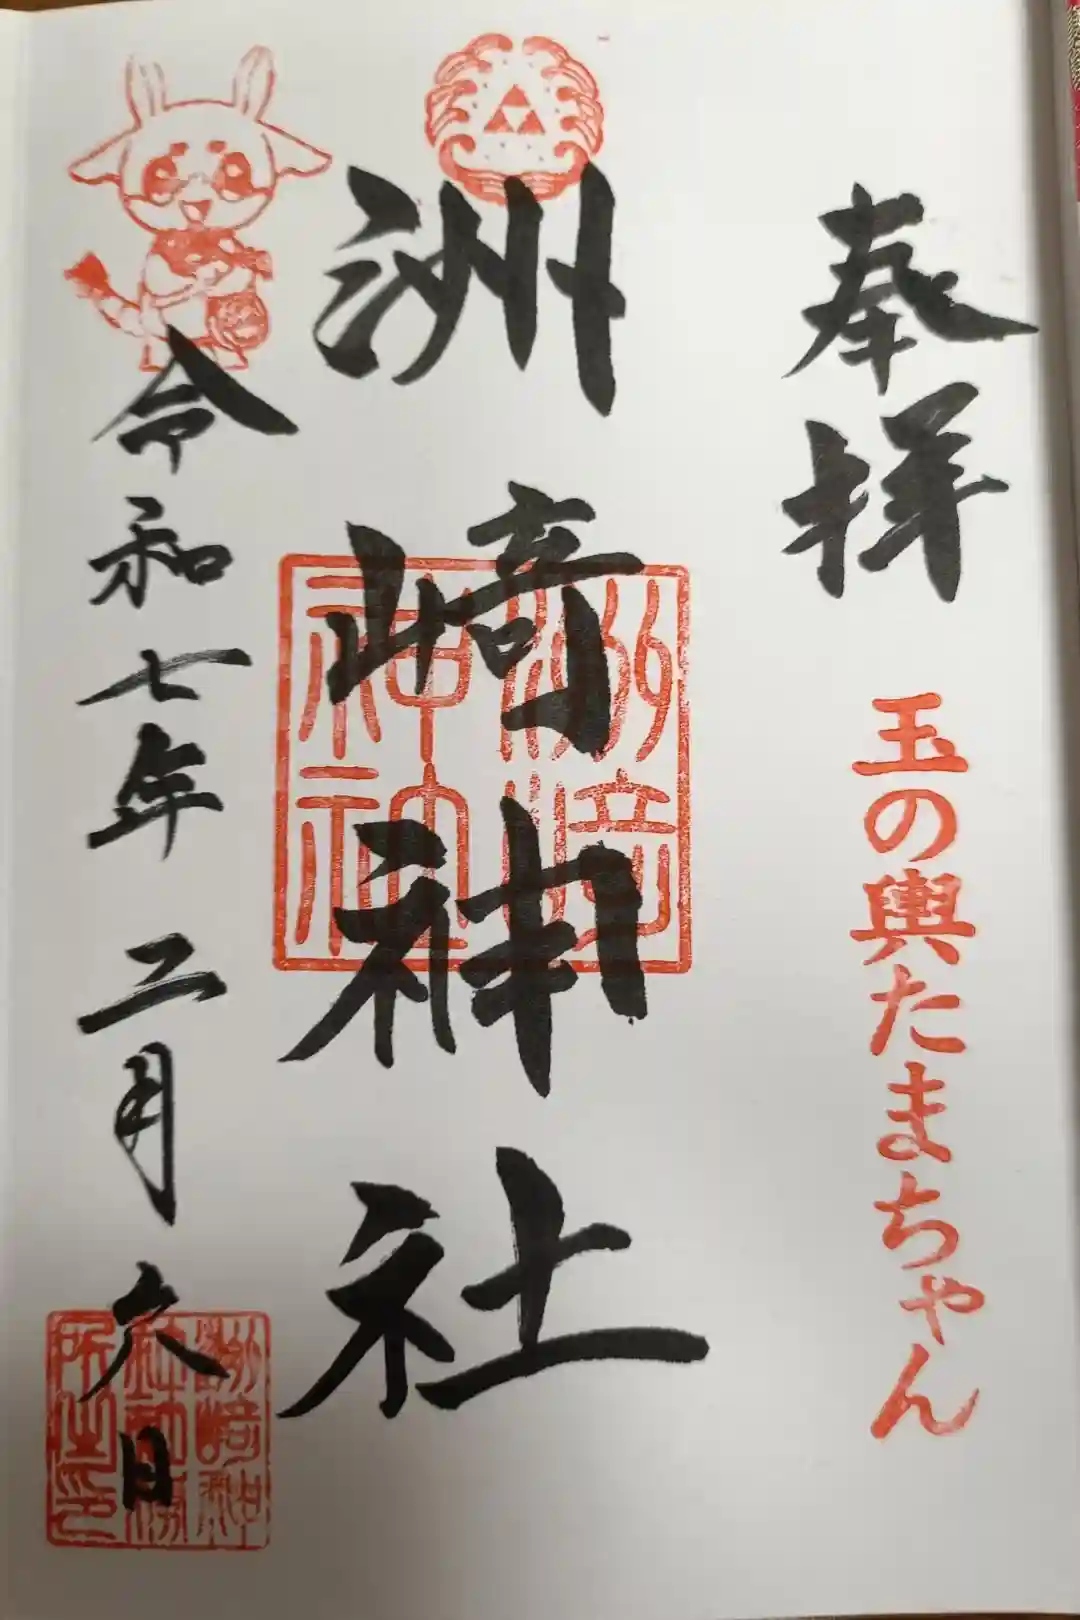 奉拝
玉の輿たまちゃん
洲崎神社
令和七年二月六日
洲崎神社
洲崎神社社務所之印